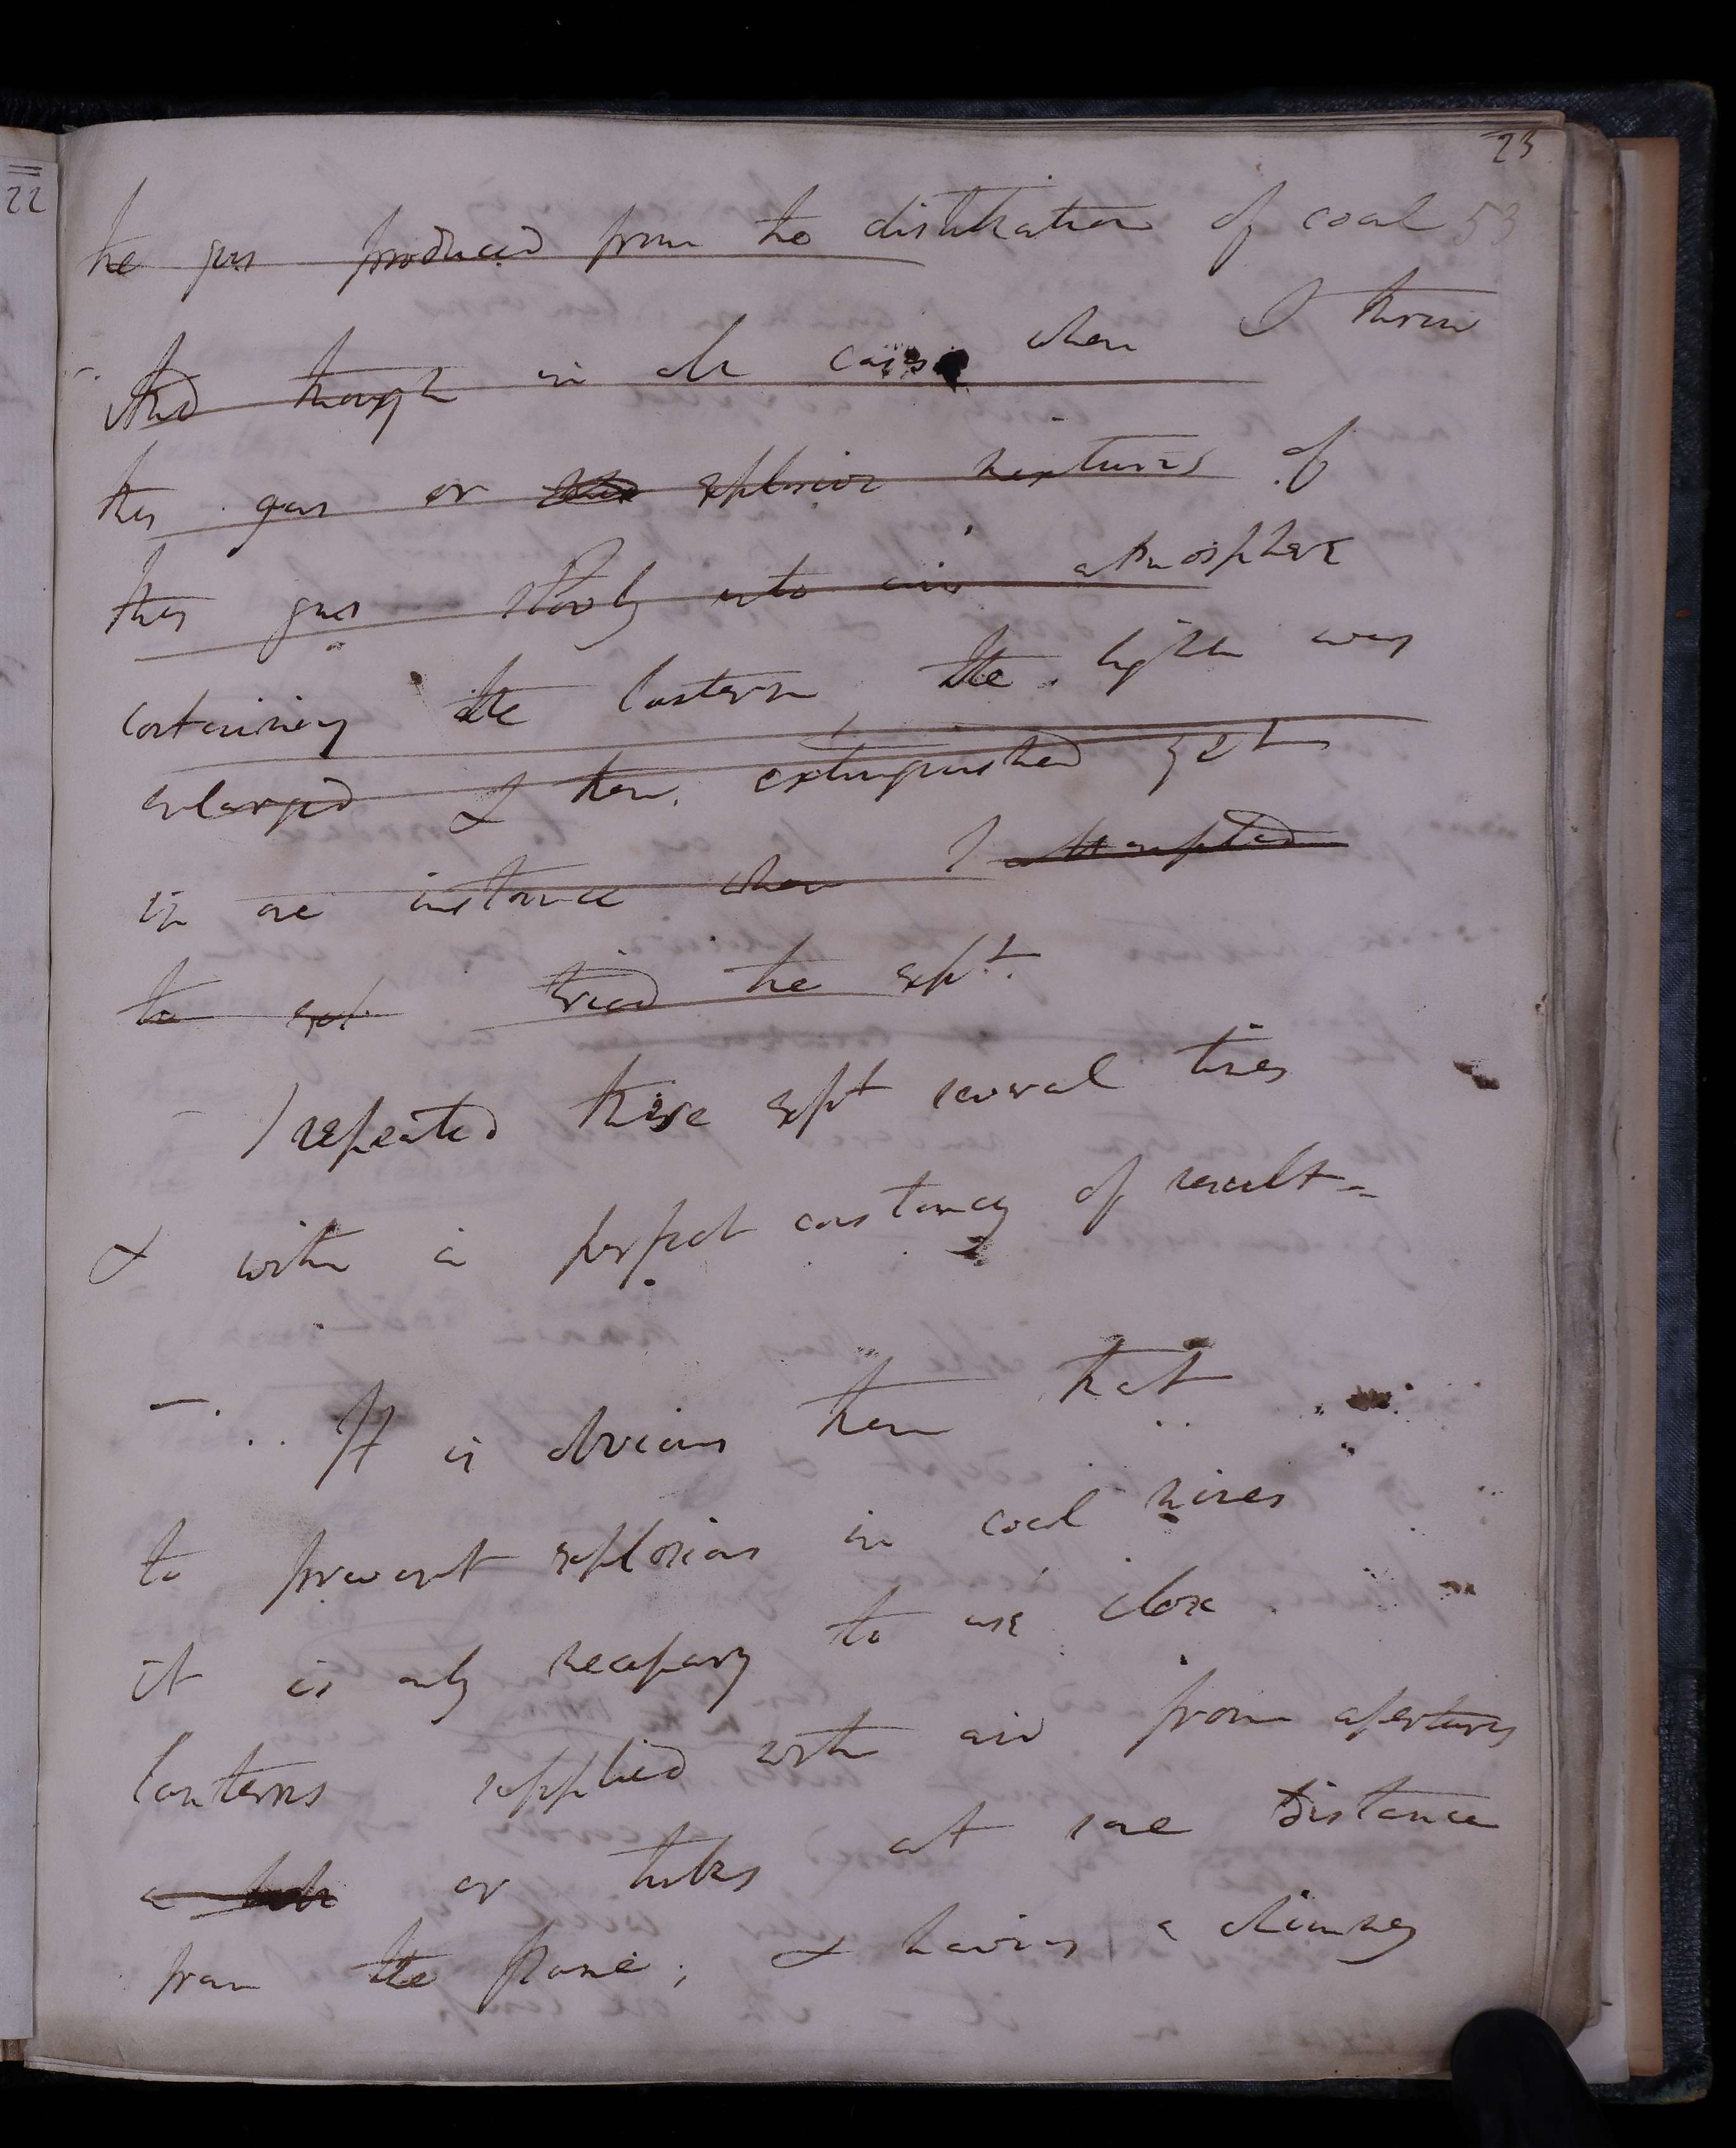 23
22
the gas produced from the distillation of coal 53
And though in all cases when I threw
this gas or explosive mixtures of
this gas slowly into air atmosphere
containing the lantern the light was
enlarged & then extinguished yet
in one instance when I attempted
to expl tried the expt.
I repeated these expt several times
& with a perfect constancy of result -
- It is obvious then that
to prevent explosions in coal mines
it is only necessary to use close
lanterns supplied with air from apertures
a or tubes at some distance
from the flame; & having a chimney